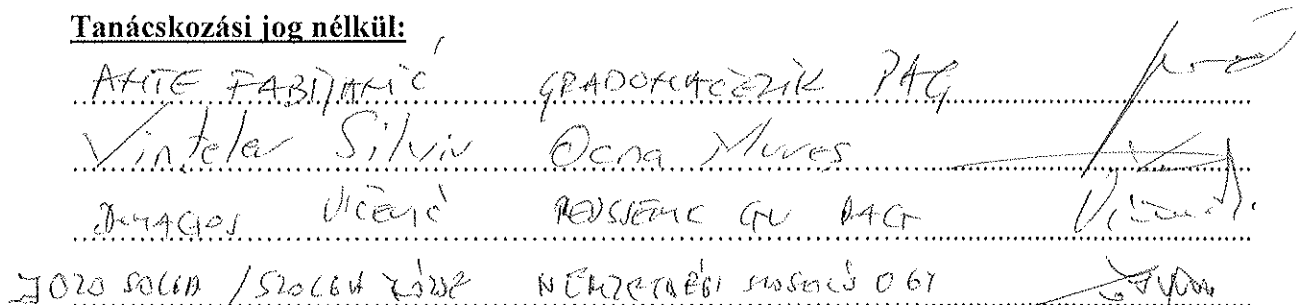 Tanácskozási jog nélkül:
ANTE FABIJANIĆ GRADONAČELNIK PAG
Vințeler Silviu Ocna Mureș
VIČEVIĆ GV PAG
JOZO SOLGA / SZOLGA JÓZSEF NEMZETISÉGI SZÓSZÓLÓ OGY